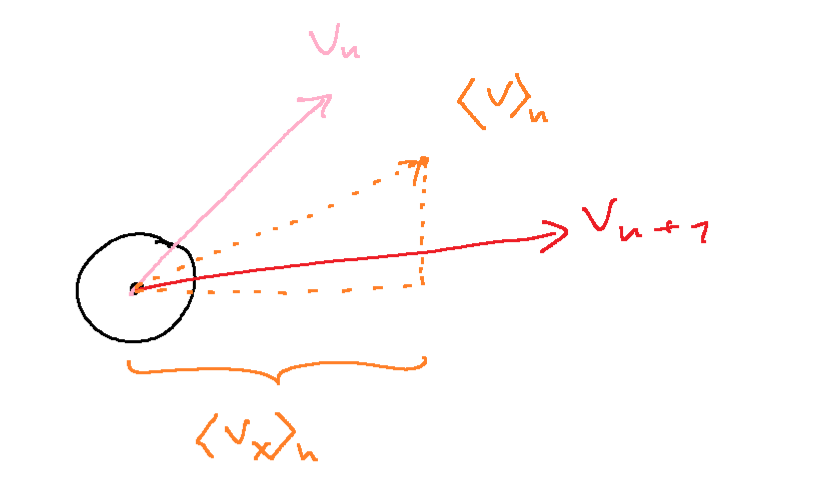 Vn
⟨V⟩n
Vn+1
⟨Vx⟩n